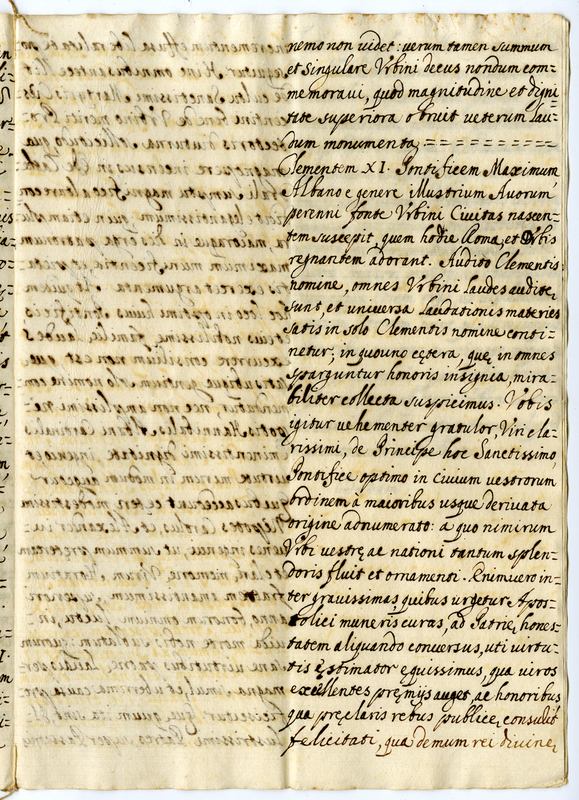 nemo non uidet: uerum tamen summum
et singulare Vrbini decus nondum com=
memoraui, quod magnitudine et digni=
tate superiora obruit ueterum lau=
dum monumenta, = = = = = = = =
Clementem XI. Pontificem Maximum
Albano e genere Illustrium Auorum
perenni fonte Vrbini Ciuitas nascen=
tem suscepit, quem hodie Roma, et Orbis
regnantem adorant. Audito Clementis
nomine, omnes Vrbini laudes auditę
sunt, et uniuersa laudationis materies
satis in solo Clementis nomine conti=
netur; in quo uno cętera, quę in omnes
sparguntur honoris insignia, mira=
biliter collecta suspicimus. Vobis
igitur uehementer gratulor, Viri cla=
rissimi, de Principe hoc Sanctissimo,
Pontifice optimo in Ciuium uestrorum
ordinem à maioribus usque deriuata
origine adnumerato: à quo nimirum
Vrbi uestrę ac nationi tantum splen=
doris fluit et ornamenti. Enimuero in=
ter grauissimas, quibus urgetur Apos=
tolici muneris curas, ad Patrię hones=
tatem aliquando conuersus, uti uirtu=
tis ęstimator ęquissimus, qua uiros
excellentes pręmijs auget, ac honoribus
qua pręclaris rebus publicę consulit
felicitati, qua demum rei diuinę